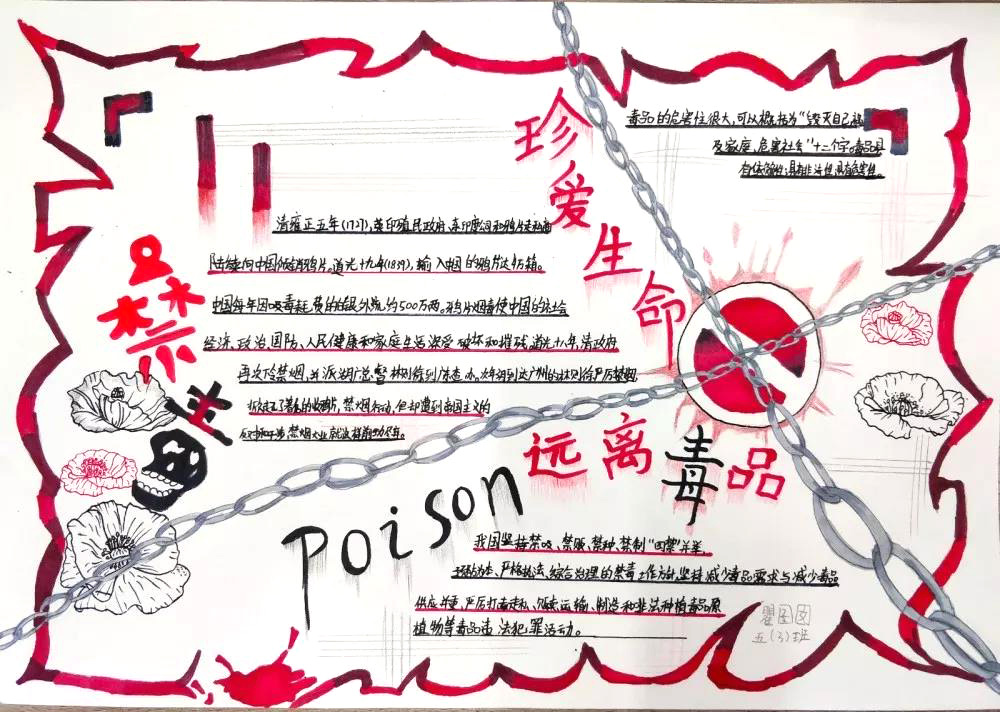 珍爱生命
远离毒品
禁毒
poison
毒品的危害性很大,可以概括为“毁灭自己祸
及家庭,危害社会”十二个字。毒品具
有依赖性;具有非法性;具有危害性。
清雍正五年(1727),英印殖民政府、东印度公司和鸦片走私商
陆续向中国倾销鸦片。道光十九年(1839),输入中国的鸦片达4万箱。
中国每年因吸毒耗费的白银外流约500万两。鸦片烟毒使中国的社会
经济、政治、国防、人民健康和家庭生活深受破坏和摧残。道光十八年,清政府
再次下令禁烟,并派湖广总督林则徐到广东查办。次年
禁烟行动,但却遭到帝国主义的
反对和干涉,禁烟大业就这样前功尽弃。
我国坚持禁吸、禁贩、禁种、禁制“四禁”并举
预防为本、严格执法、综合治理的禁毒工作方针,坚持减少毒品需求与减少毒品
供应并重,严厉打击走私、贩卖、运输、制造和非法种植毒品原
植物等毒品违法犯罪活动。
五(3)班